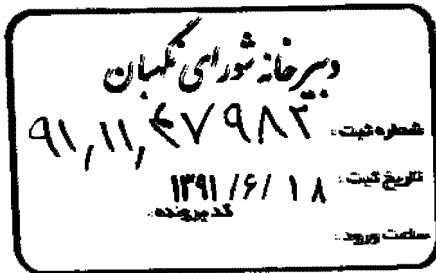 دبیرخانه شورای نگهبان
شماره ثبت: ۹۱,۱۱,۴۷۹۸۳
تاریخ ثبت: ۱۳۹۱ /۶/ ۱۸
کد پرونده:
ساعت ورود: